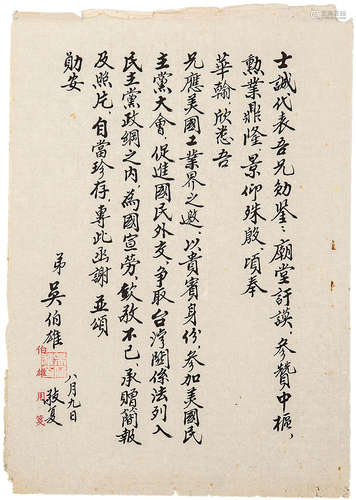 士誠代表吾兄勛鑒：廟堂訏謨，參贊中樞，
勲業鼎隆，景仰殊殷，頃奉
華翰，欣悉吾
兄應美國工業界之邀，以貴賓身份，參加美國民
主黨大會，促進國民外交，爭取台灣關係法列入
民主黨政綱之內，為國宣勞，欽敬不已，承贈簡報
及照片，自當珍存，專此函謝，並頌
勛安
弟 吳伯雄 敬复
八月九日
伯雄用箋